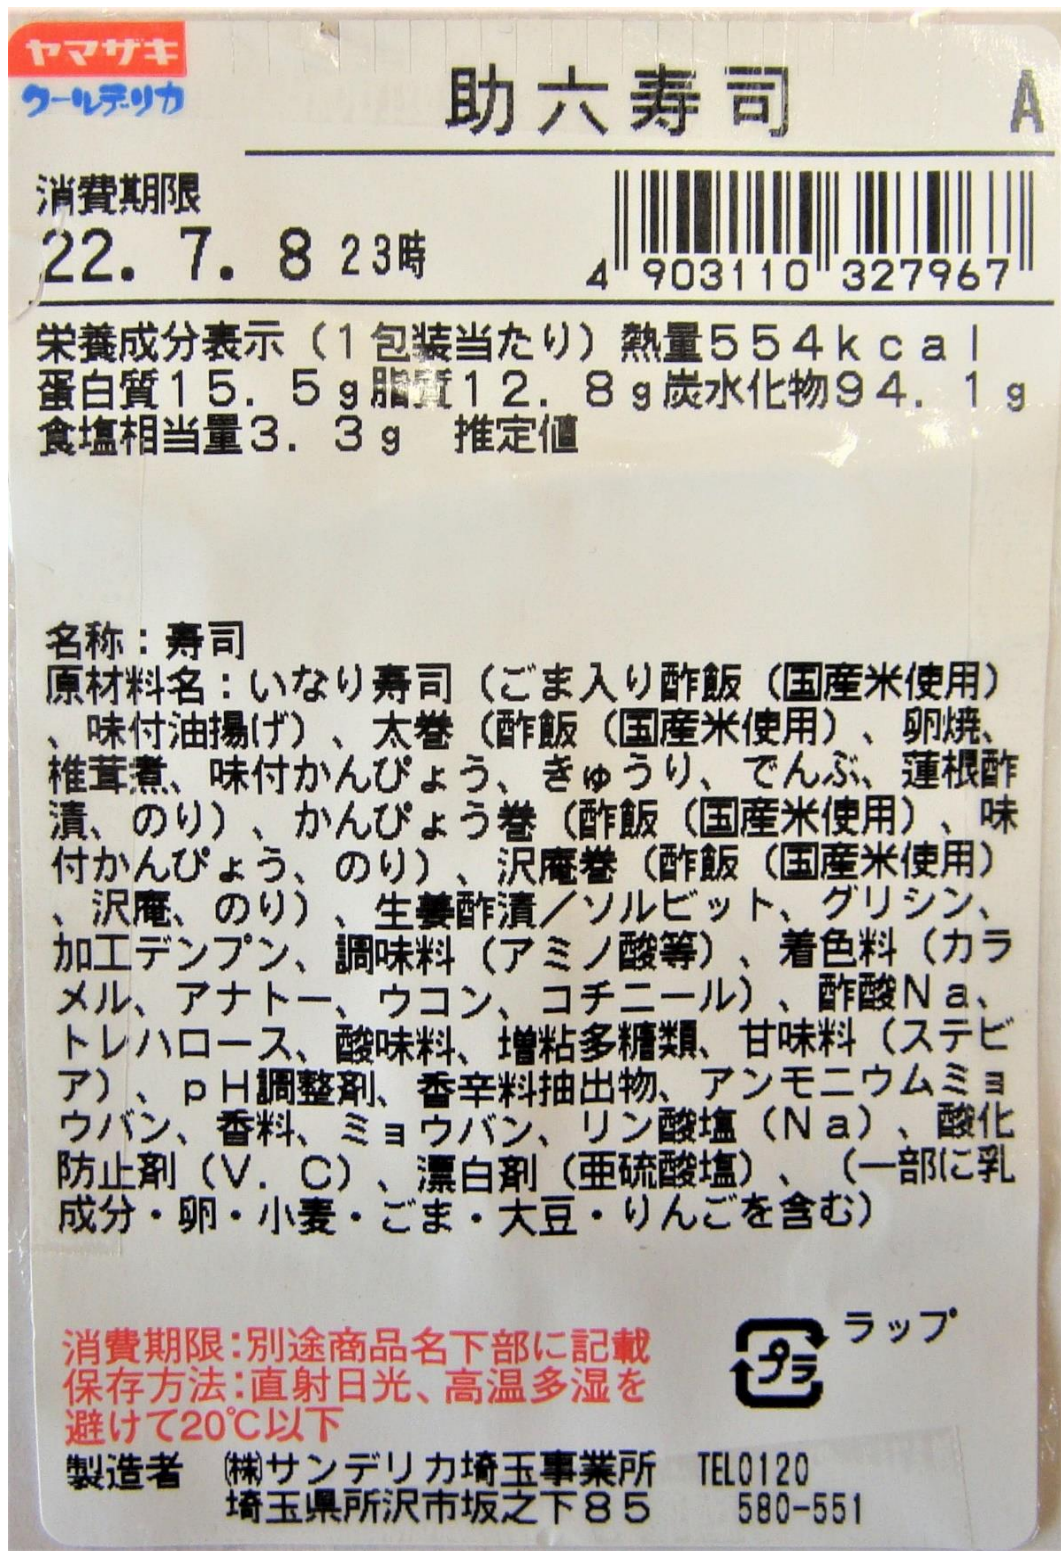 ヤマザキ
クールデリカ
助六寿司 A
消費期限
22. 7. 8 23時
4 903110 327967
栄養成分表示（1包装当たり）熱量554kcal
蛋白質15. 5g脂質12. 8g炭水化物94. 1g
食塩相当量3. 3g 推定値
名称：寿司
原材料名：いなり寿司（ごま入り酢飯（国産米使用）
、味付油揚げ）、太巻（酢飯（国産米使用）、卵焼、
椎茸煮、味付かんぴょう、きゅうり、でんぶ、蓮根酢
漬、のり）、かんぴょう巻（酢飯（国産米使用）、味
付かんぴょう、のり）、沢庵巻（酢飯（国産米使用）
、沢庵、のり）、生姜酢漬／ソルビット、グリシン、
加工デンプン、調味料（アミノ酸等）、着色料（カラ
メル、アナトー、ウコン、コチニール）、酢酸Na、
トレハロース、酸味料、増粘多糖類、甘味料（ステビ
ア）、pH調整剤、香辛料抽出物、アンモニウムミョ
ウバン、香料、ミョウバン、リン酸塩（Na）、酸化
防止剤（V. C）、漂白剤（亜硫酸塩）、（一部に乳
成分・卵・小麦・ごま・大豆・りんごを含む）
消費期限：別途商品名下部に記載
保存方法：直射日光、高温多湿を
避けて20℃以下
プラ ラップ
製造者 ㈱サンデリカ埼玉事業所 TEL0120
埼玉県所沢市坂之下85 580-551